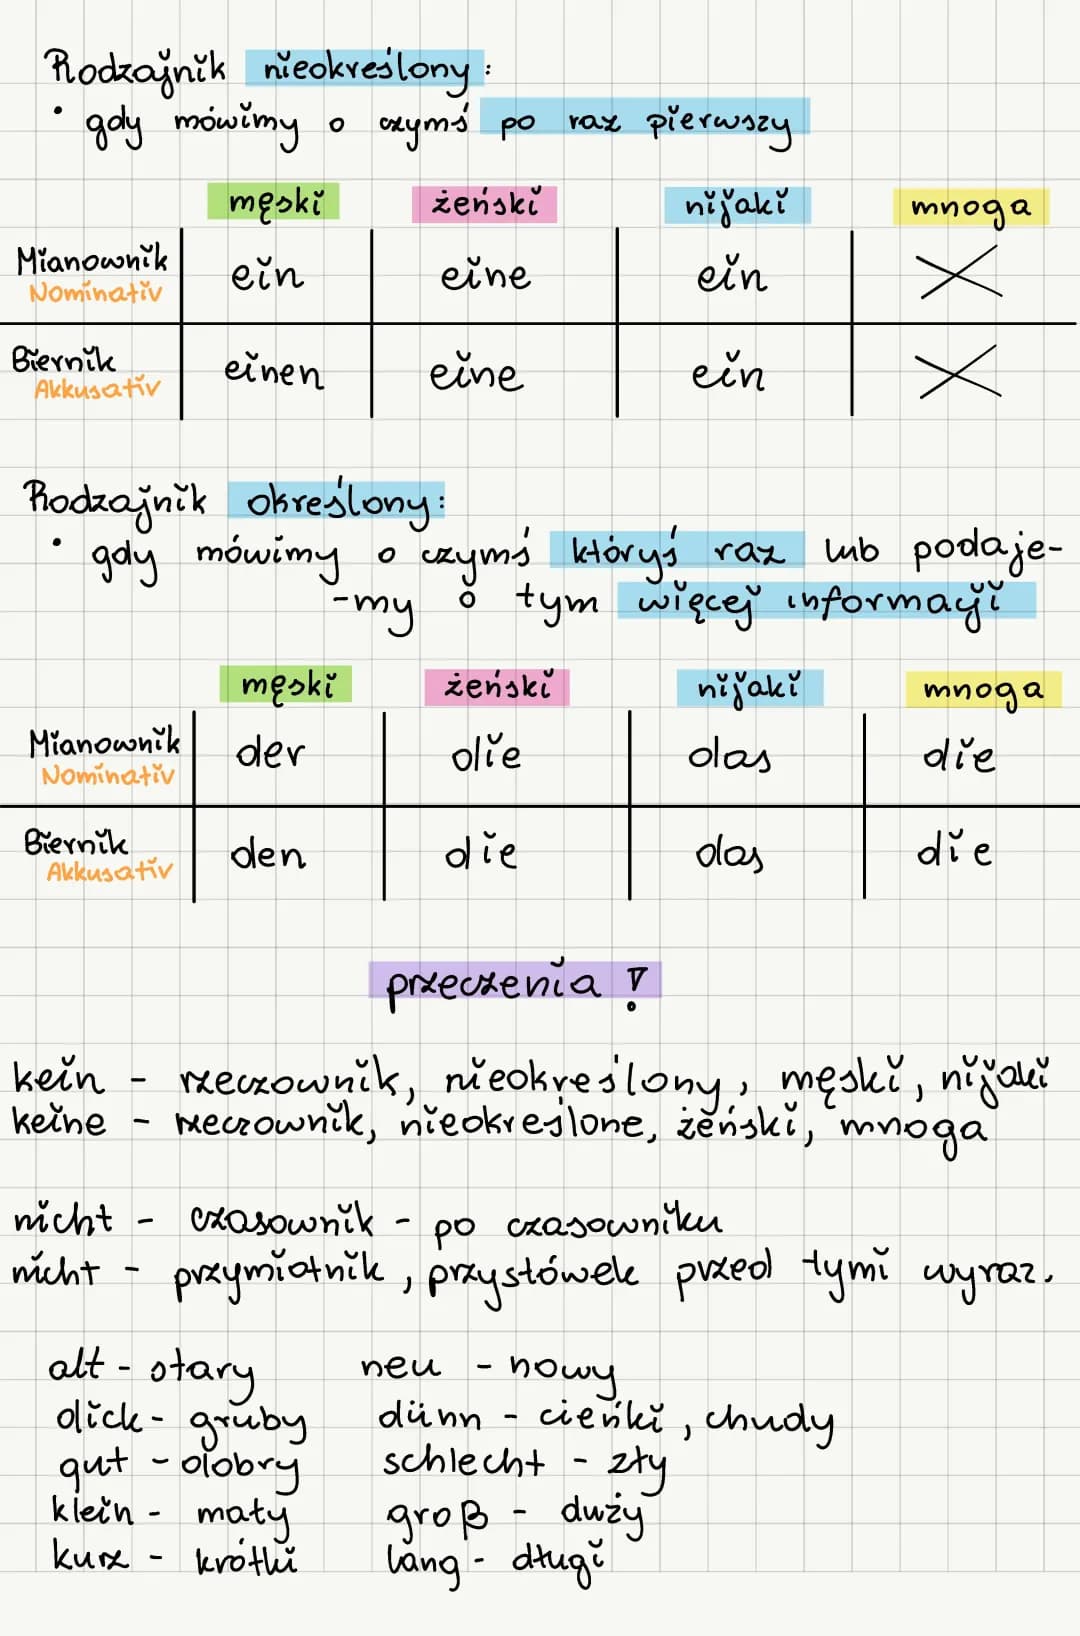 Rodzajnik nieokreślony:
• gdy mówimy o czymś po raz pierwszy
męski żeński nijaki mnoga
Mianownik ein eine ein X
Nominativ
Biernik einen eine ein X
Akkusativ
Rodzajnik określony:
• gdy mówimy o czymś któryś raz lub podaje-
-my o tym więcej informacji
męski żeński nijaki mnoga
Mianownik der die das die
Nominativ
Biernik den die das die
Akkusativ
przeczenia !
kein - rzeczownik, nieokreślony, męski, nijaki
keine - rzeczownik, nieokreślone, żeński, mnoga
nicht - czasownik - po czasowniku
nicht - przymiotnik, przysłówek przed tymi wyraz.
alt - stary neu - nowy
dick - gruby dünn - cieńki, chudy
gut - dobry schlecht - zły
klein - mały groß - duży
kurz - krótki lang - długi